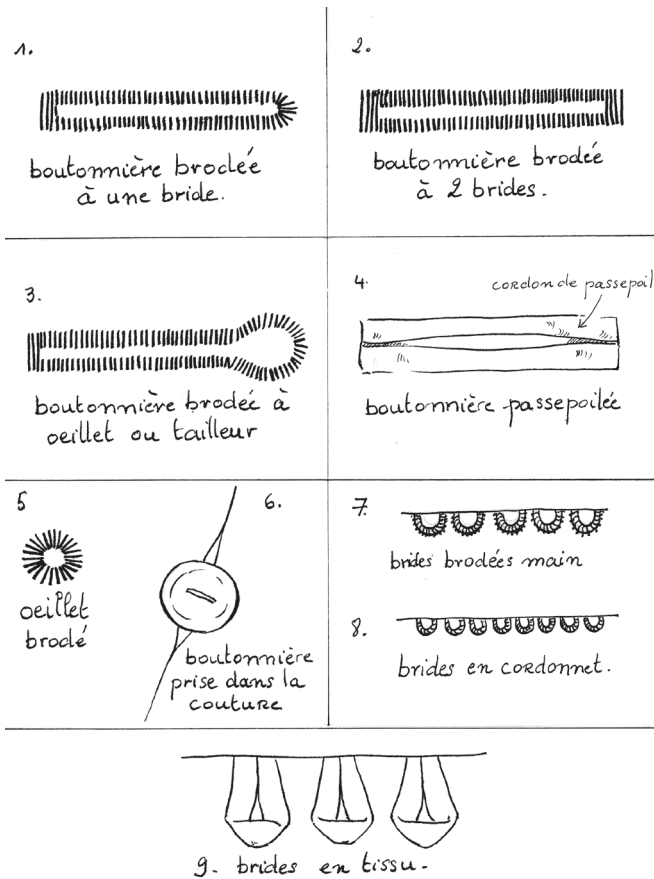 1.
boutonnière brodée
à une bride.
2.
boutonnière brodée
à 2 brides.
3.
boutonnière brodée à
oeillet ou tailleur
4.
cordon de passepoil
boutonnière passepoilée
5
oeillet
brodé
6.
boutonnière
prise dans la
couture
7.
brides brodées main
8.
brides en cordonnet.
9. brides en tissu.